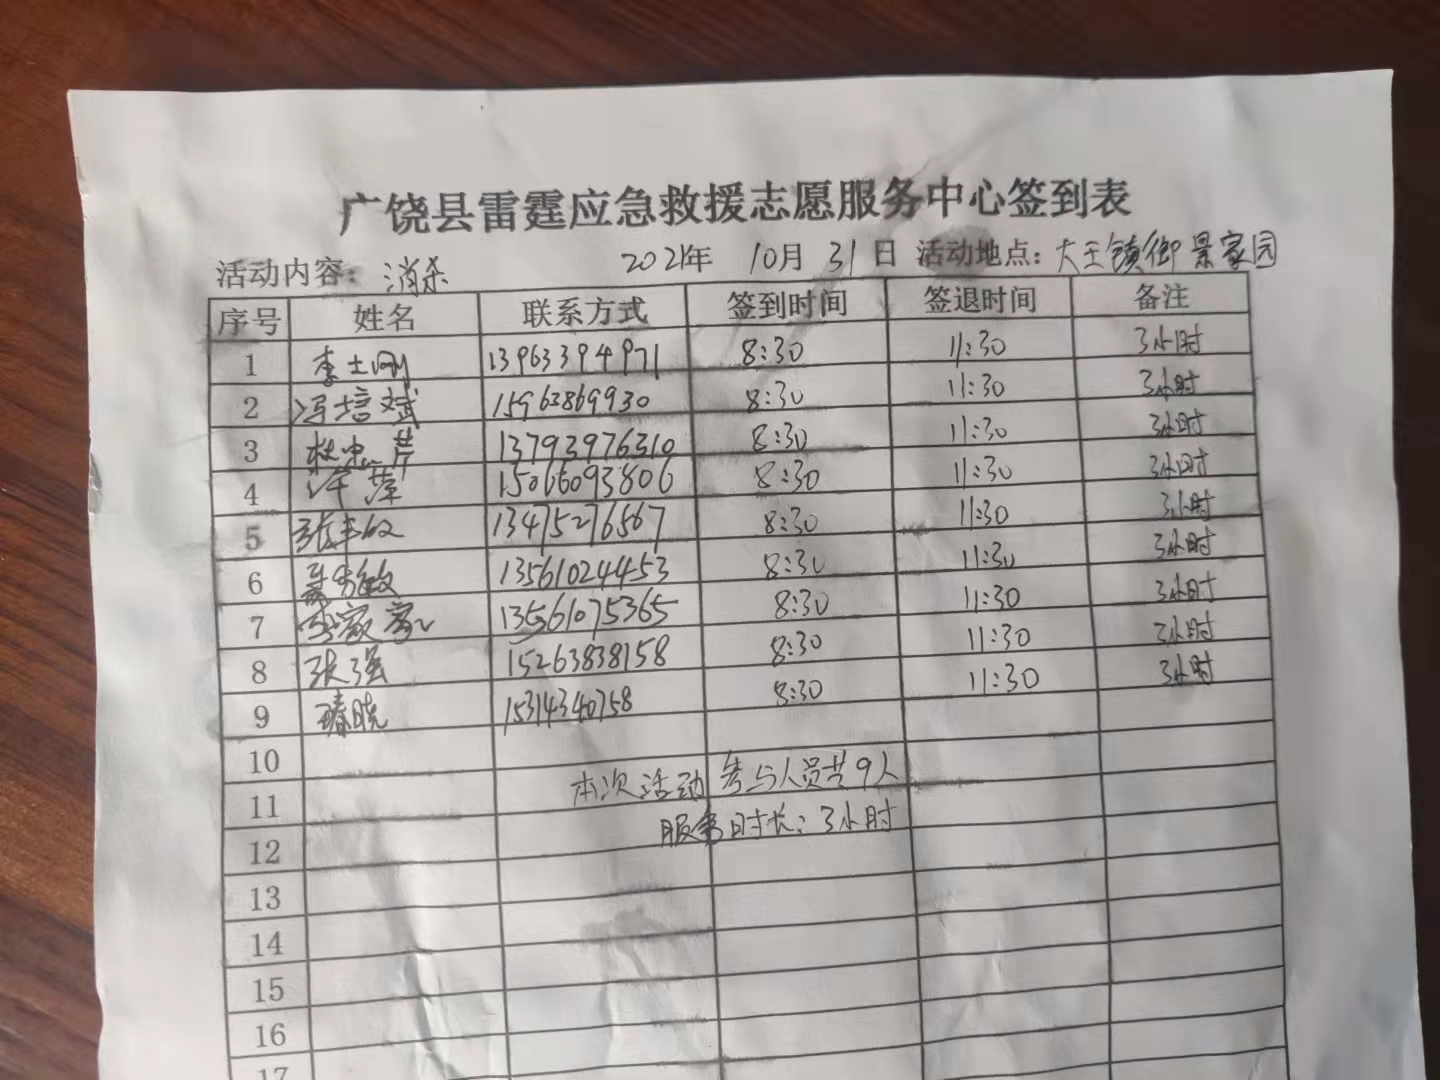 广饶县雷霆应急救援志愿服务中心签到表
活动内容：消杀 2021年 10月 31日 活动地点：大王镇御景家园
序号 姓名 联系方式 签到时间 签退时间 备注
1 李士刚 13963394971 8:30 11:30 3小时
2 冯培斌 15963869930 8:30 11:30 3小时
3 13793976310 8:30 11:30 3小时
4 许萍 15066093806 8:30 11:30 3小时
5 13475276567 8:30 11:30 3小时
6 13561024453 8:30 11:30 3小时
7 13561075365 8:30 11:30 3小时
8 张强 15263838158 8:30 11:30 3小时
9 15314340758 8:30 11:30 3小时
10
11 本次活动参与人员共9人
12 服务时长：3小时
13
14
15
16
17